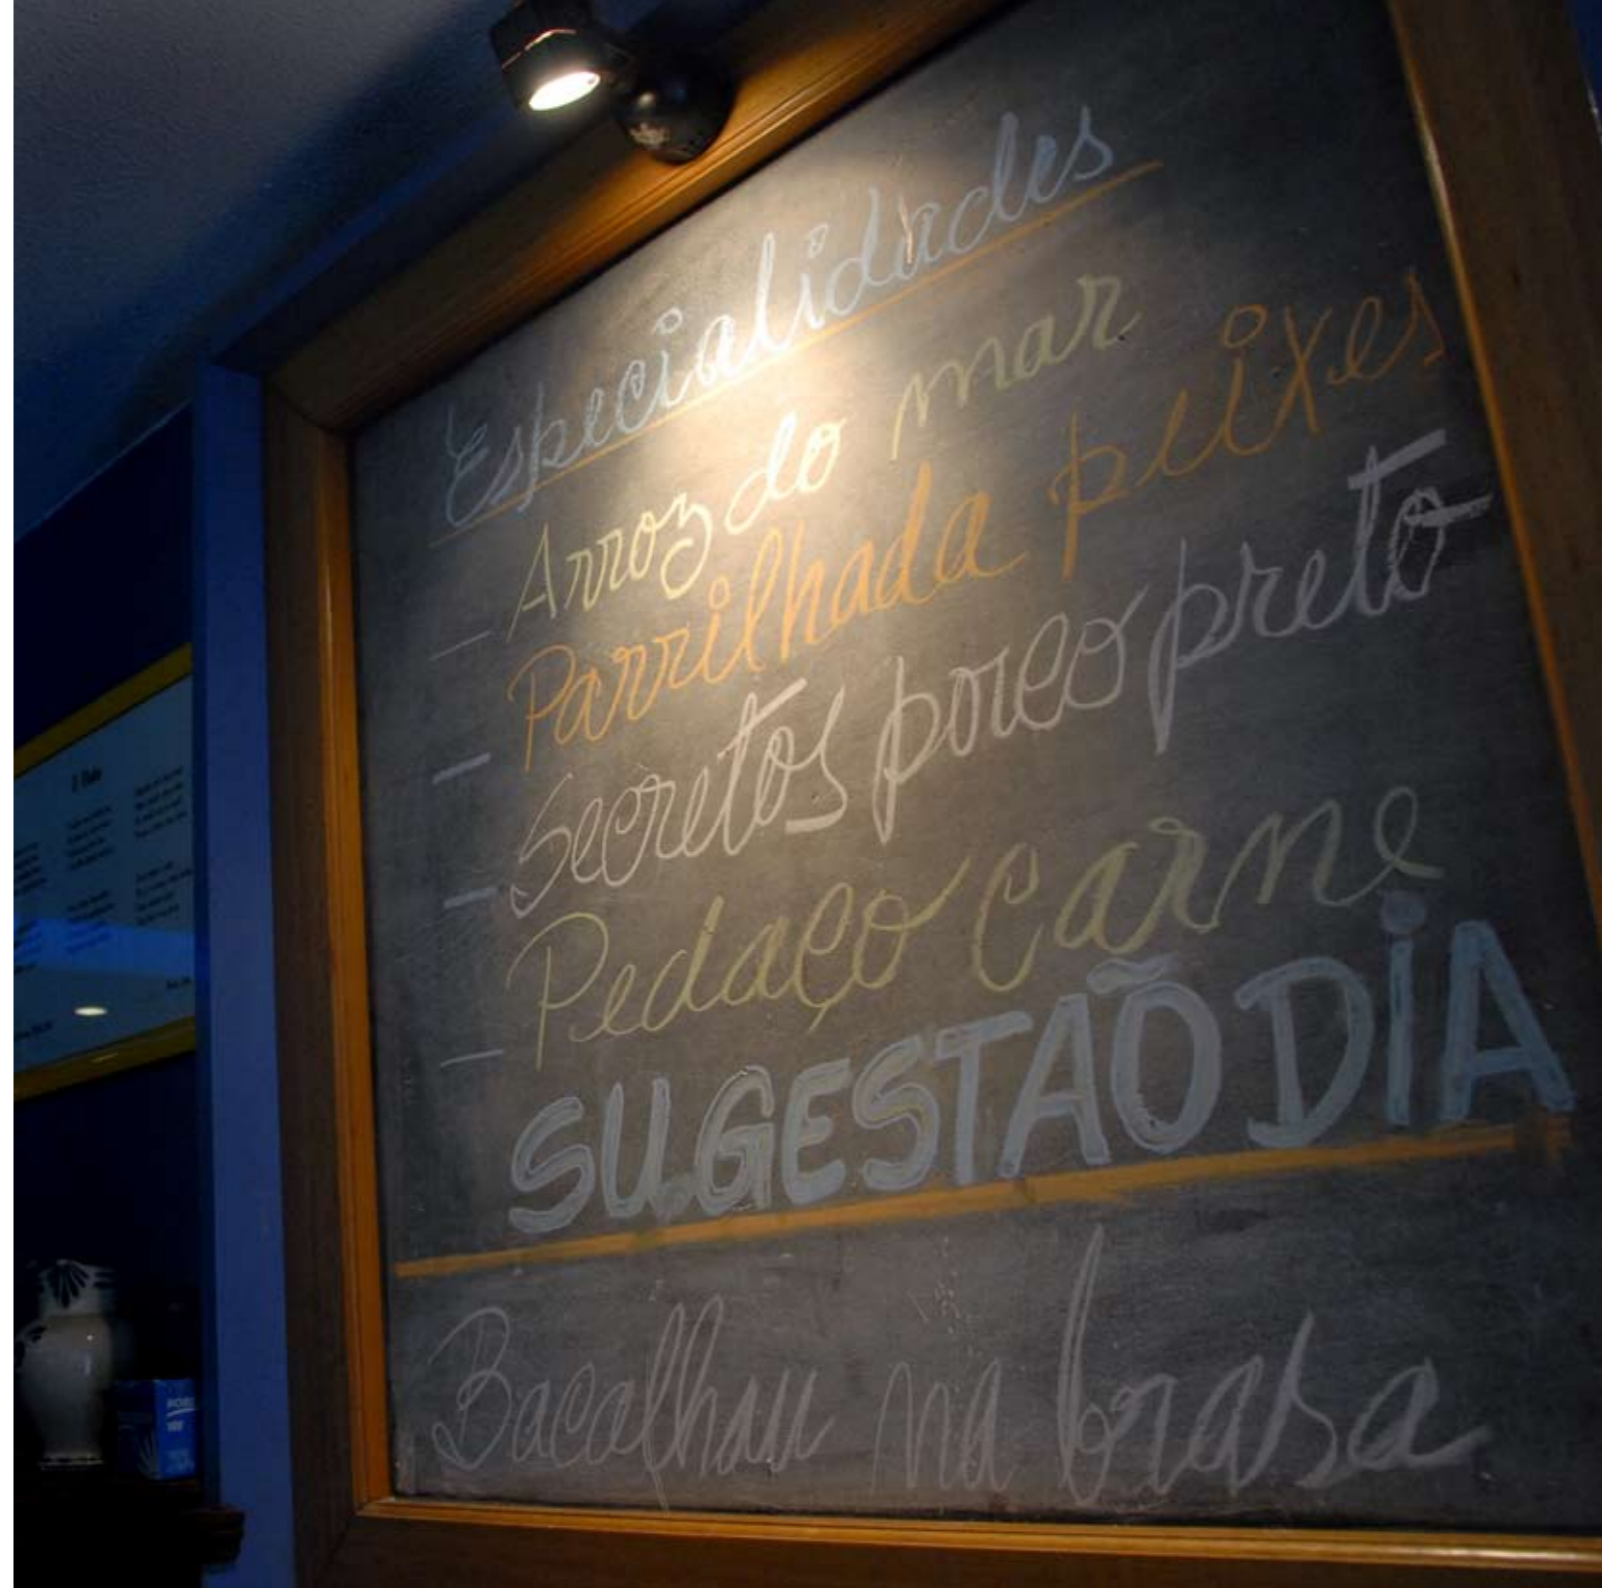 Especialidades
- Arroz do mar
- Parrilhada peixes
- Secretos porco preto
- Pedaço carne
SUGESTÃO DIA
Bacalhau na brasa